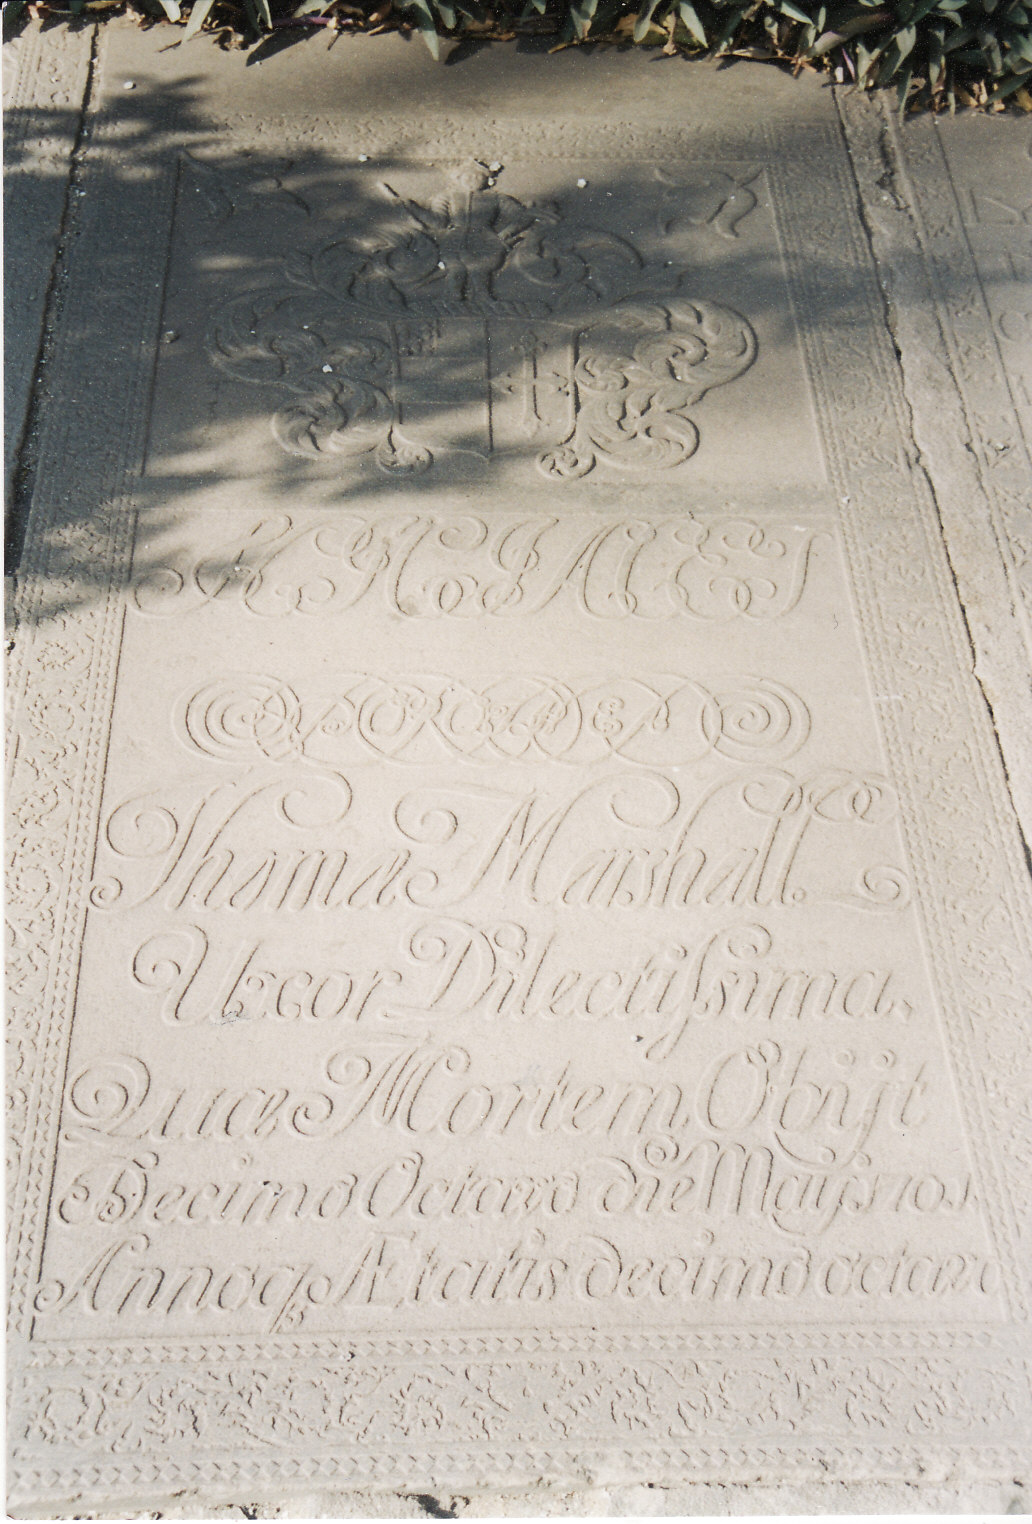 HIC JACET
DORO THEA
Thomæ Marshall.
Uxcor Dilectissima.
Quæ Mortem Obijt
Decimo Octavo die Maÿs 1705
Annoqꝫ Ætatis decimo octavo